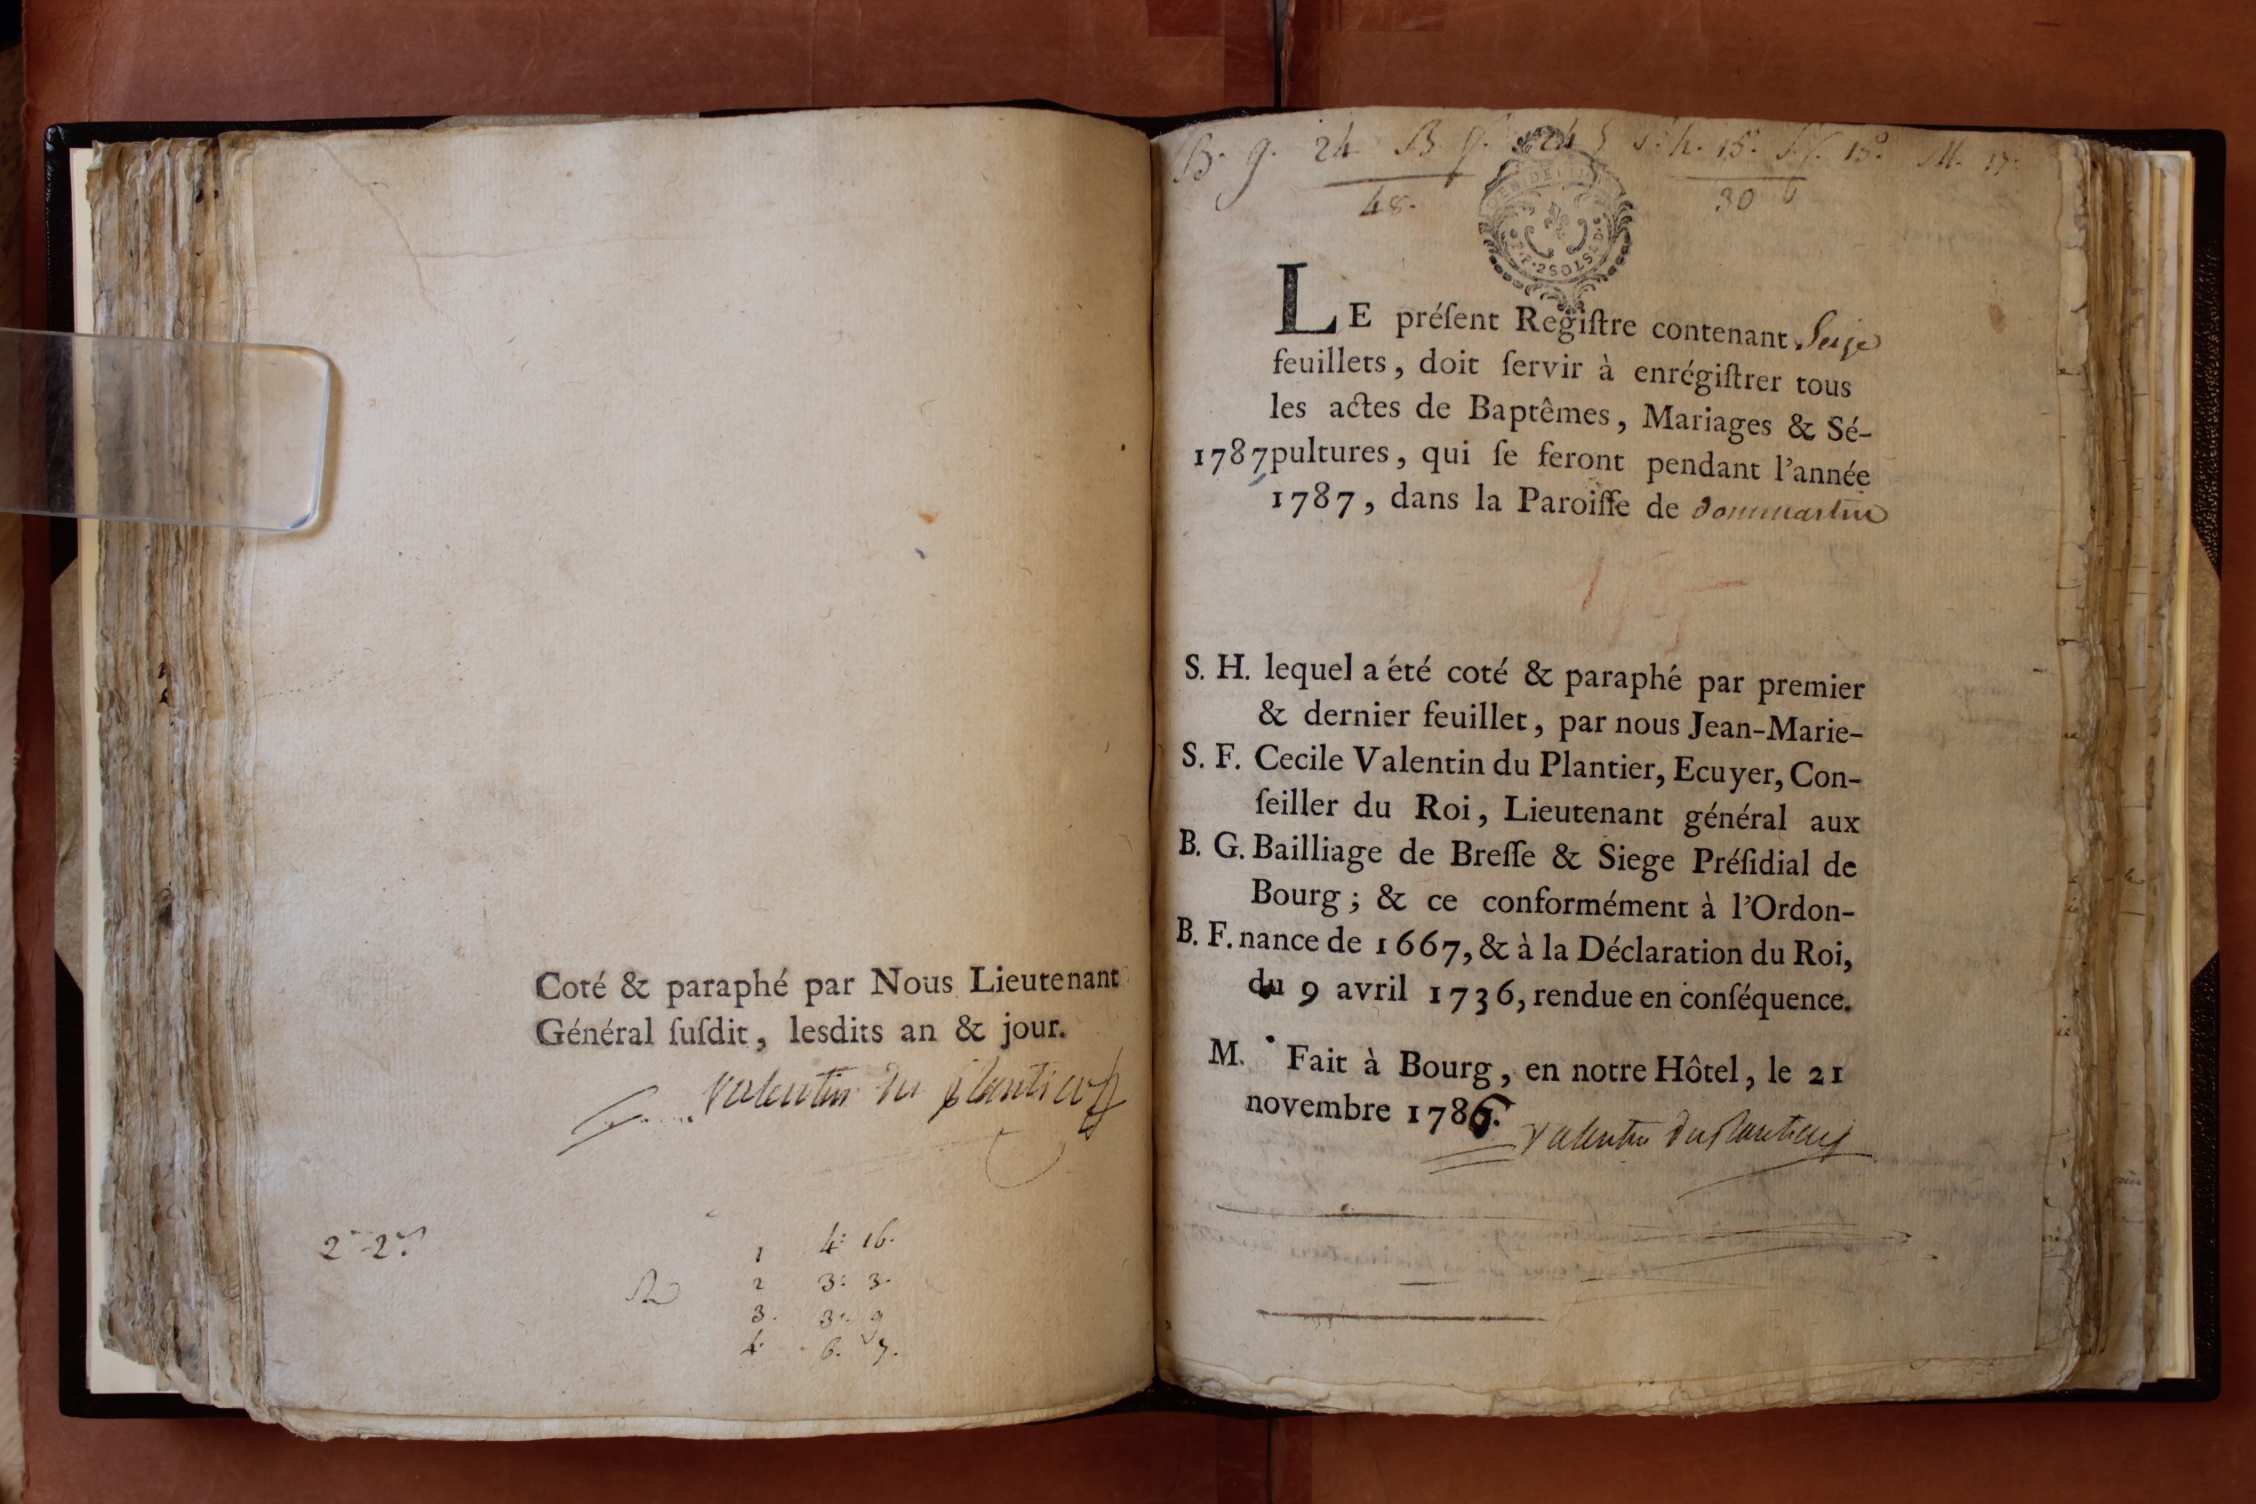 Coté & paraphé par Nous Lieutenant
Général ſuſdit, lesdits an & jour.
Valentin du plantier
2 2
1 4: 16.
2 3: 3.
3. 3: 9
4. 6. 7.
B. g. 24 B f. 24 S. h. 15. S. f. 15. M. 17.
48. 30
2 SOLS
LE préſent Regiſtre contenant Seize
feuillets, doit ſervir à enrégiſtrer tous
les actes de Baptêmes, Mariages & Sé-
1787 pultures, qui ſe feront pendant l'année
1787, dans la Paroiſſe de dommartin
S. H. lequel a été coté & paraphé par premier
& dernier feuillet, par nous Jean-Marie-
S. F. Cecile Valentin du Plantier, Ecuyer, Con-
ſeiller du Roi, Lieutenant général aux
B. G. Bailliage de Breſſe & Siege Préſidial de
Bourg; & ce conformément à l'Ordon-
B. F. nance de 1667, & à la Déclaration du Roi,
du 9 avril 1736, rendue en conſéquence.
M. Fait à Bourg, en notre Hôtel, le 21
novembre 1786.
Valentin du plantier